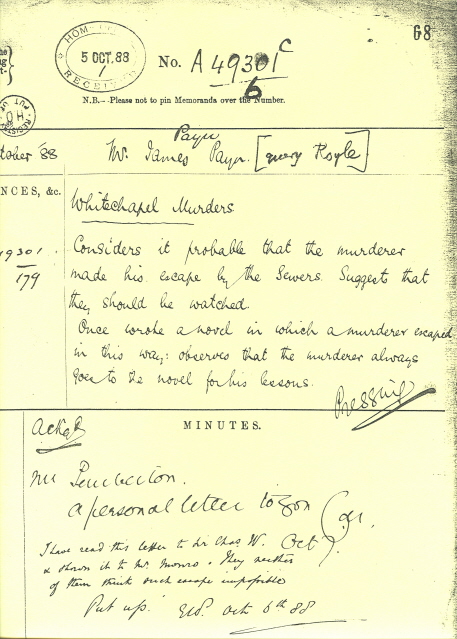 68
HOME
5 OCT. 88
RECEIVED
No. A 49301 C
6
N.B.—Please not to pin Memoranda over the Number.
tober '88
Payn
Mr. James Payn. [query Royle]
NCES, &c.
Whitechapel Murders
Considers it probable that the murderer
made his escape by the Sewers. Suggests that
they should be watched.
Once wrote a novel in which a murderer escaped
in this way: observes that the murderer always
goes to the novel for his lessons.
9301
179
Pressing
MINUTES.
Ackd
Mr Pemberton.
a personal letter to you
Oct
I have read this letter to Sir Chas W.
& shown it to Mr. Monro. They neither
of them think such escape impossible
Put up. Oct 6th 88